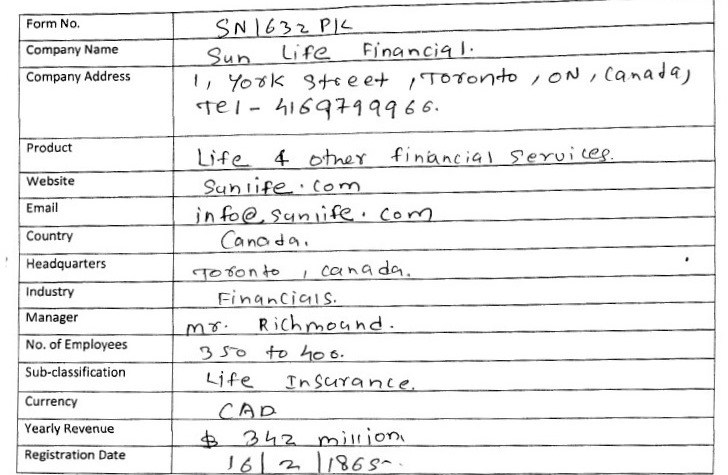 Form No. SN1632PK
Company Name Sun Life Financial.
Company Address 1, York Street, Toronto, ON, Canada,
Tel - 4169799966.
Product Life & other financial services.
Website Sunlife.com
Email info@sunlife.com
Country Canada.
Headquarters Toronto, Canada.
Industry Financials.
Manager Mr. Richmound.
No. of Employees 350 to 400.
Sub-classification Life Insurance.
Currency CAD
Yearly Revenue $ 342 million
Registration Date 16/2/1865.